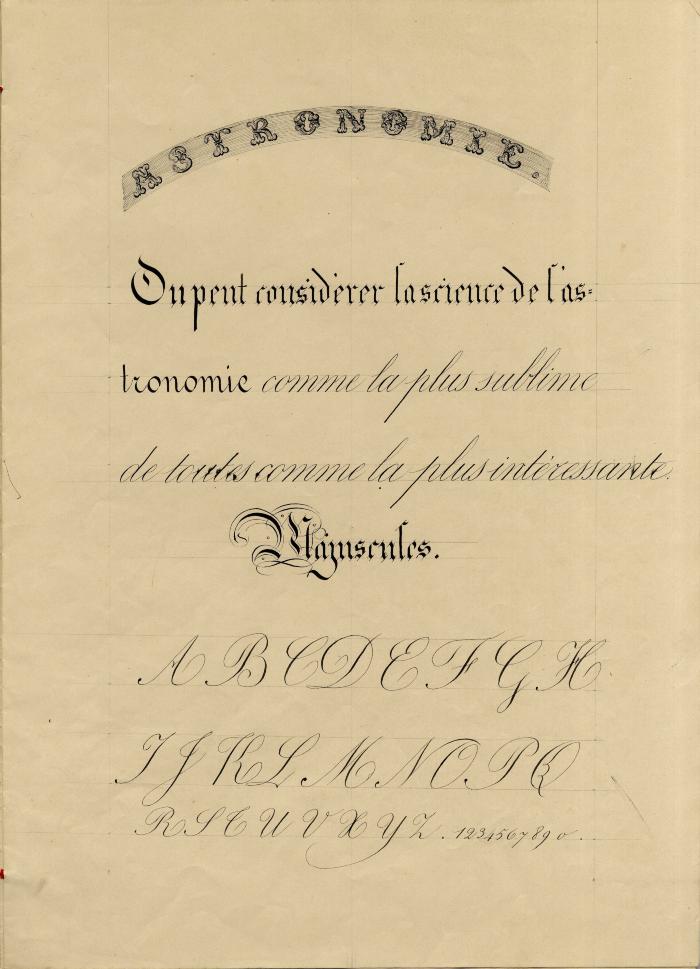 ASTRONOMIE.
On peut considérer la science de l'as=
tronomie comme la plus sublime
de toutes comme la plus intéressante.
Majuscules.
A B C D E F G H
I J K L M N O P Q
R S T U V X Y Z. 1234567890.